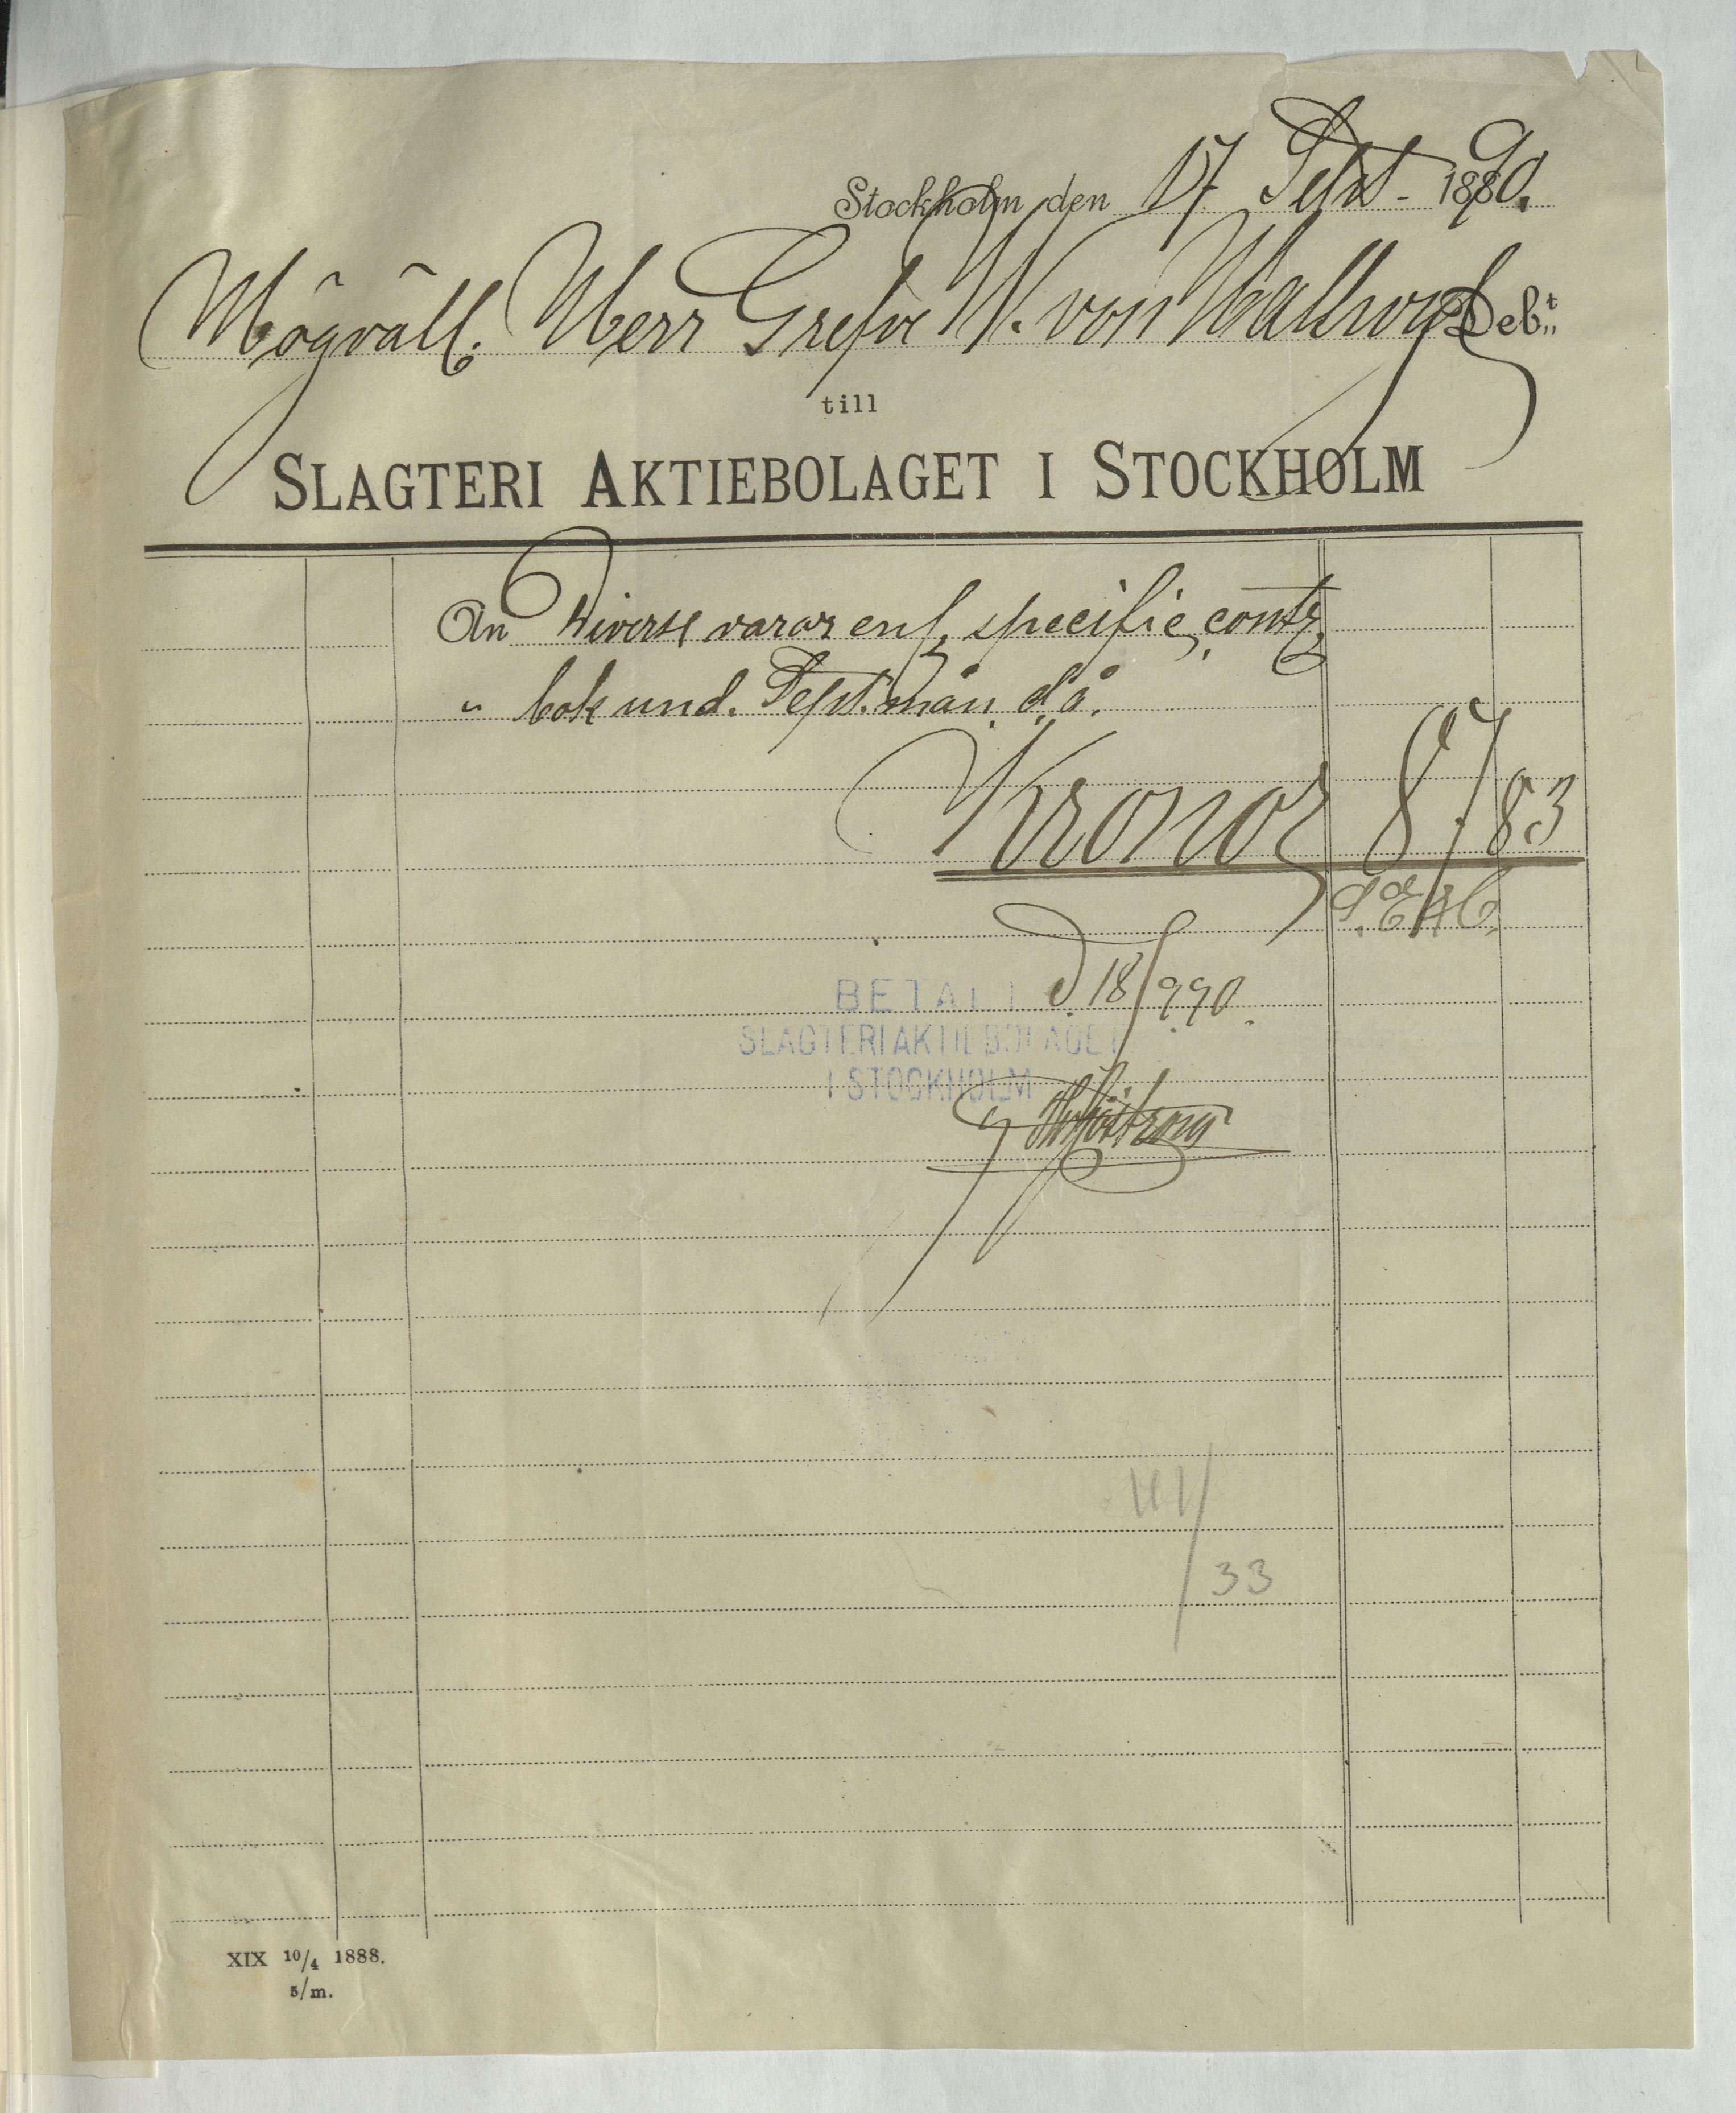 Stockholm den 17 Sept. 1890.
Högväll. Herr Grefve W. von Hallwyl Deb:t
till
SLAGTERI AKTIEBOLAGET I STOCKHOLM
An Diverse varor enl. specific. contr.
" bok und. Sept. mån. d. å.
Kronor 87 83
S. E. & O.
BETALT d. 18/9 90.
SLAGTERIAKTIEBOLAGET
I STOCKHOLM
33
XIX 10/4 1888.
5/m.